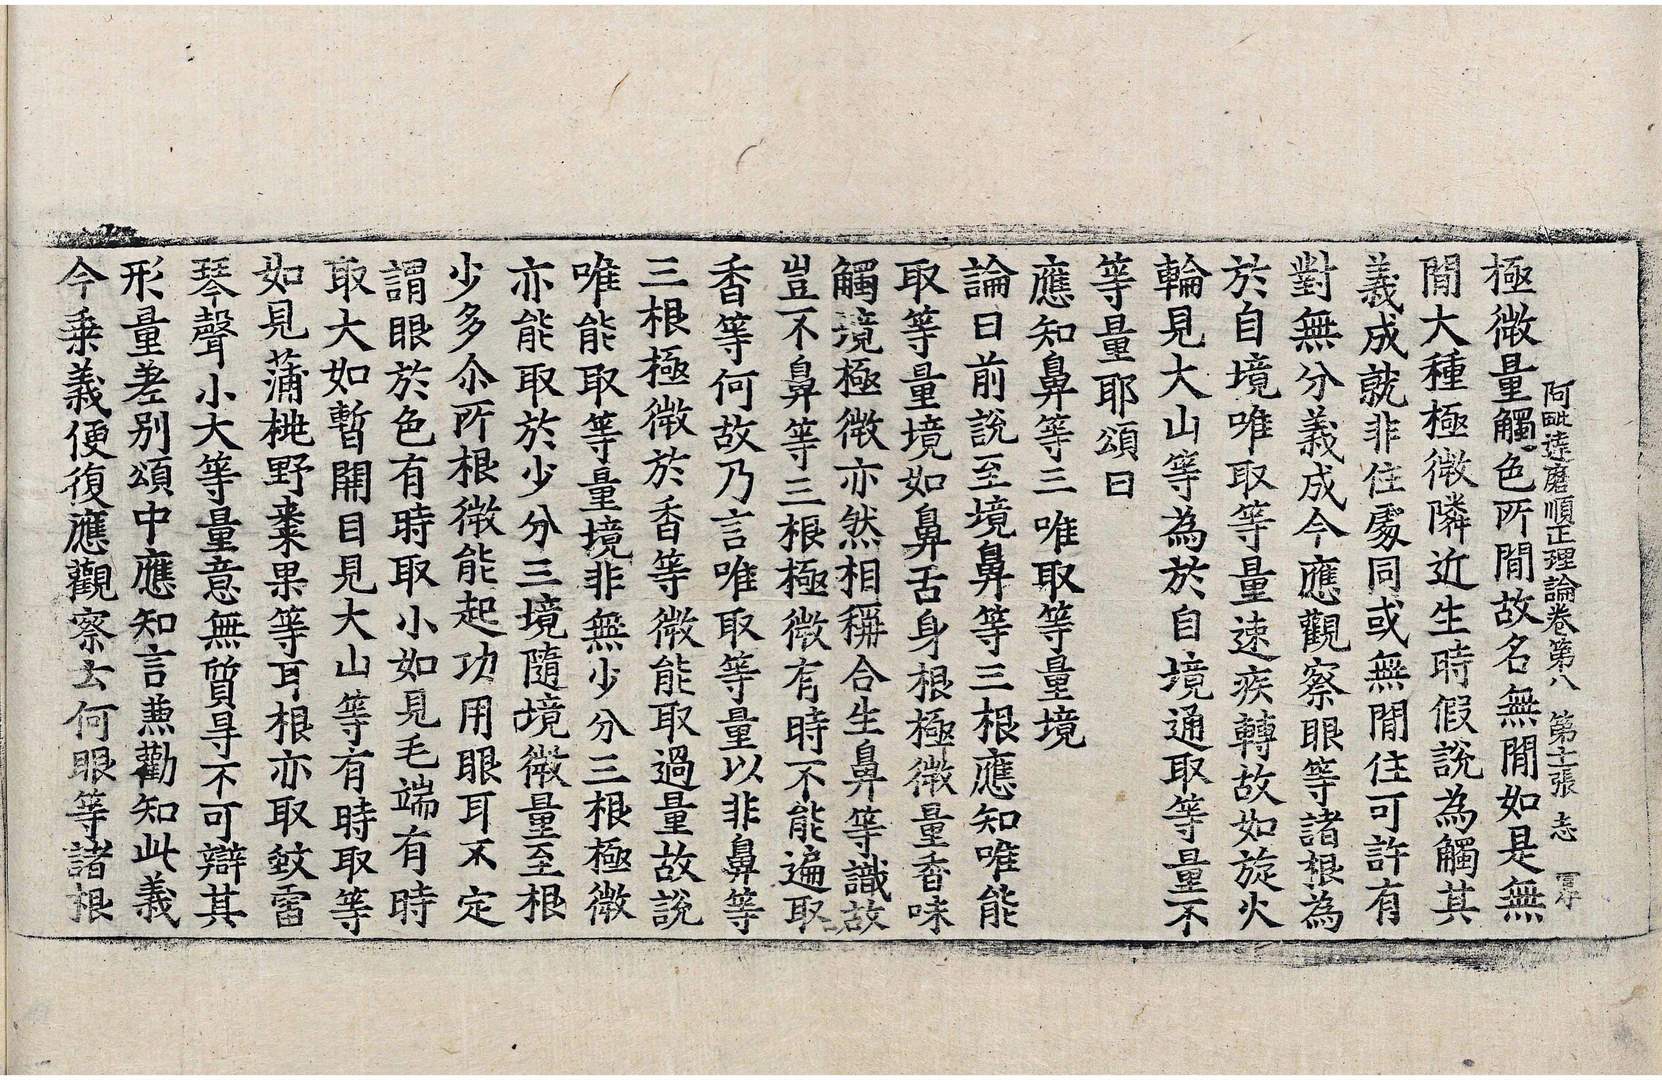 阿毗達磨順正理論卷第八 第十二張 志
極微量觸色所閒故名無閒如是無
閒大種極微隣近生時假說為觸其
義成就非住處同或無閒住可許有
對無分義成今應觀察眼等諸根為
於自境唯取等量速疾轉故如旋火
輪見大山等為於自境通取等量不
等量耶頌曰
應知鼻等三唯取等量境
論曰前說至境鼻等三根應知唯能
取等量境如鼻舌身根極微量香味
觸境極微亦然相稱合生鼻等識故
豈不鼻等三根極微有時不能遍取
香等何故乃言唯取等量以非鼻等
三根極微於香等微能取過量故說
唯能取等量境非無少分三根極微
亦能取於少分三境隨境微量至根
少多尒所根微能起功用眼耳不定
謂眼於色有時取小如見毛端有時
取大如暫開目見大山等有時取等
如見蒲桃野棗果等耳根亦取蚊雷
琴聲小大等量意無質㝵不可辯其
形量差別頌中應知言兼勸知此義
今乗義便復應觀察云何眼等諸根